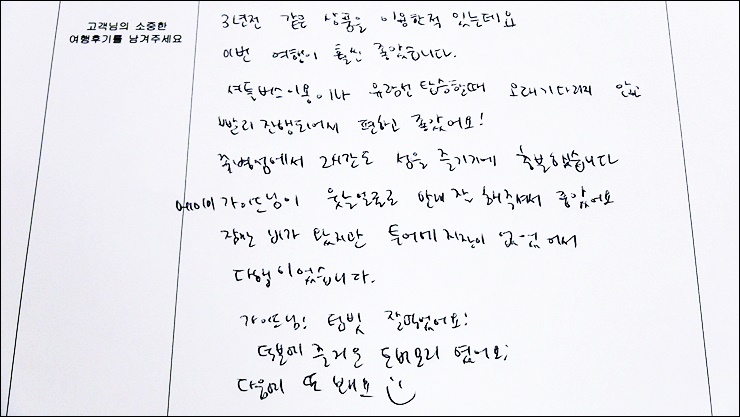 고객님의 소중한
여행후기를 남겨주세요
3년전 같은 상품을 이용한적 있는데요
이번 여행이 훨씬 좋았습니다.
셔틀버스이용이나 유람선 탑승할때 오래기다리지 않고
빨리 진행되어서 편하고 좋았어요!
2시간도 섬을 즐기기에 충분했습니다
에이미 가이드님이 웃는얼굴로 안내 잘 해주셔서 좋았어요
잠깐 비가 왔지만 투어에 지장이 없었어서
다행이었습니다.
가이드님! 텀빙 잘먹었어요!
덕분에 즐거운 도버모리 였어요!
다음에 또 봬요